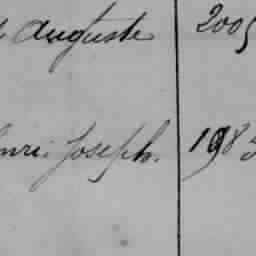 Auguste 2005
Henri Joseph. 1985